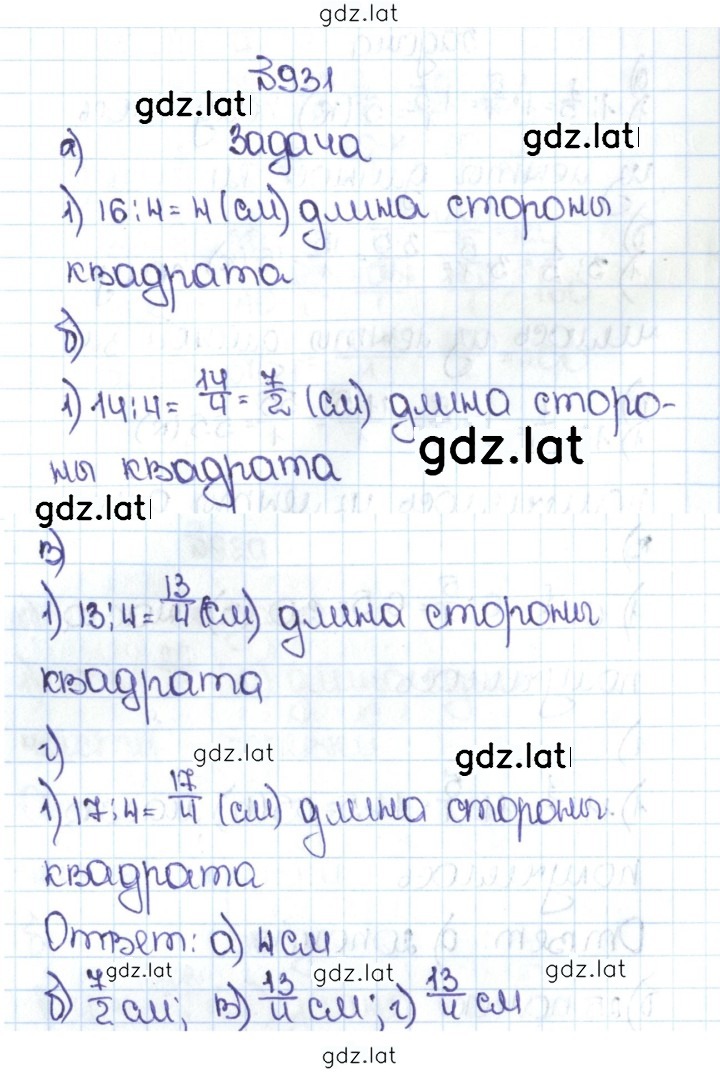 gdz.lat
№931
gdz.lat
а) Задача gdz.lat
1) 16:4=4 (см) длина стороны
квадрата
б)
1) 14:4= 14/4 = 7/2 (см) длина сторо-
gdz.lat
ны квадрата
gdz.lat
в)
1) 13:4= 13/4 (см) длина стороны
квадрата
г) gdz.lat gdz.lat
1) 17:4= 17/4 (см) длина стороны
квадрата
Ответ: а) 4 см
gdz.lat gdz.lat gdz.lat
б) 7/2 см; в) 13/4 см; г) 13/4 см
gdz.lat